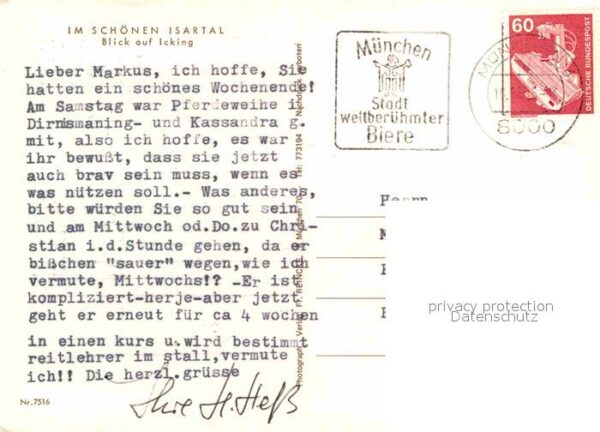 IM SCHÖNEN ISARTAL
Blick auf Icking
Lieber Markus, ich hoffe, Sie
hatten ein schönes Wochenende!
Am Samstag war Pferdeweihe i
Dirnismaning- und Kassandra g.
mit, also ich hoffe, es war
ihr bewußt, dass sie jetzt
auch brav sein muss, wenn es
was nützen soll.- Was anderes,
bitte würden Sie so gut sein
und am Mittwoch od.Do.zu Chri-
stian i.d.Stunde gehen, da er
bißchen "sauer" wegen,wie ich
vermute, Mittwochs!? -Er ist
kompliziert-herje-aber jetzt
geht er erneut für ca 4 wochen
in einen kurs u.wird bestimmt
reitlehrer im stall,vermute
ich!! Die herzl.grüsse
Ihre H. Heß
Nr.7516
Nachdruck verboten
Tel: 773194
München 70
Photograph. Verlag
München
Stadt
weltberühmter
Biere
8000
60
DEUTSCHE BUNDESPOST
Herrn
privacy protection
Datenschutz